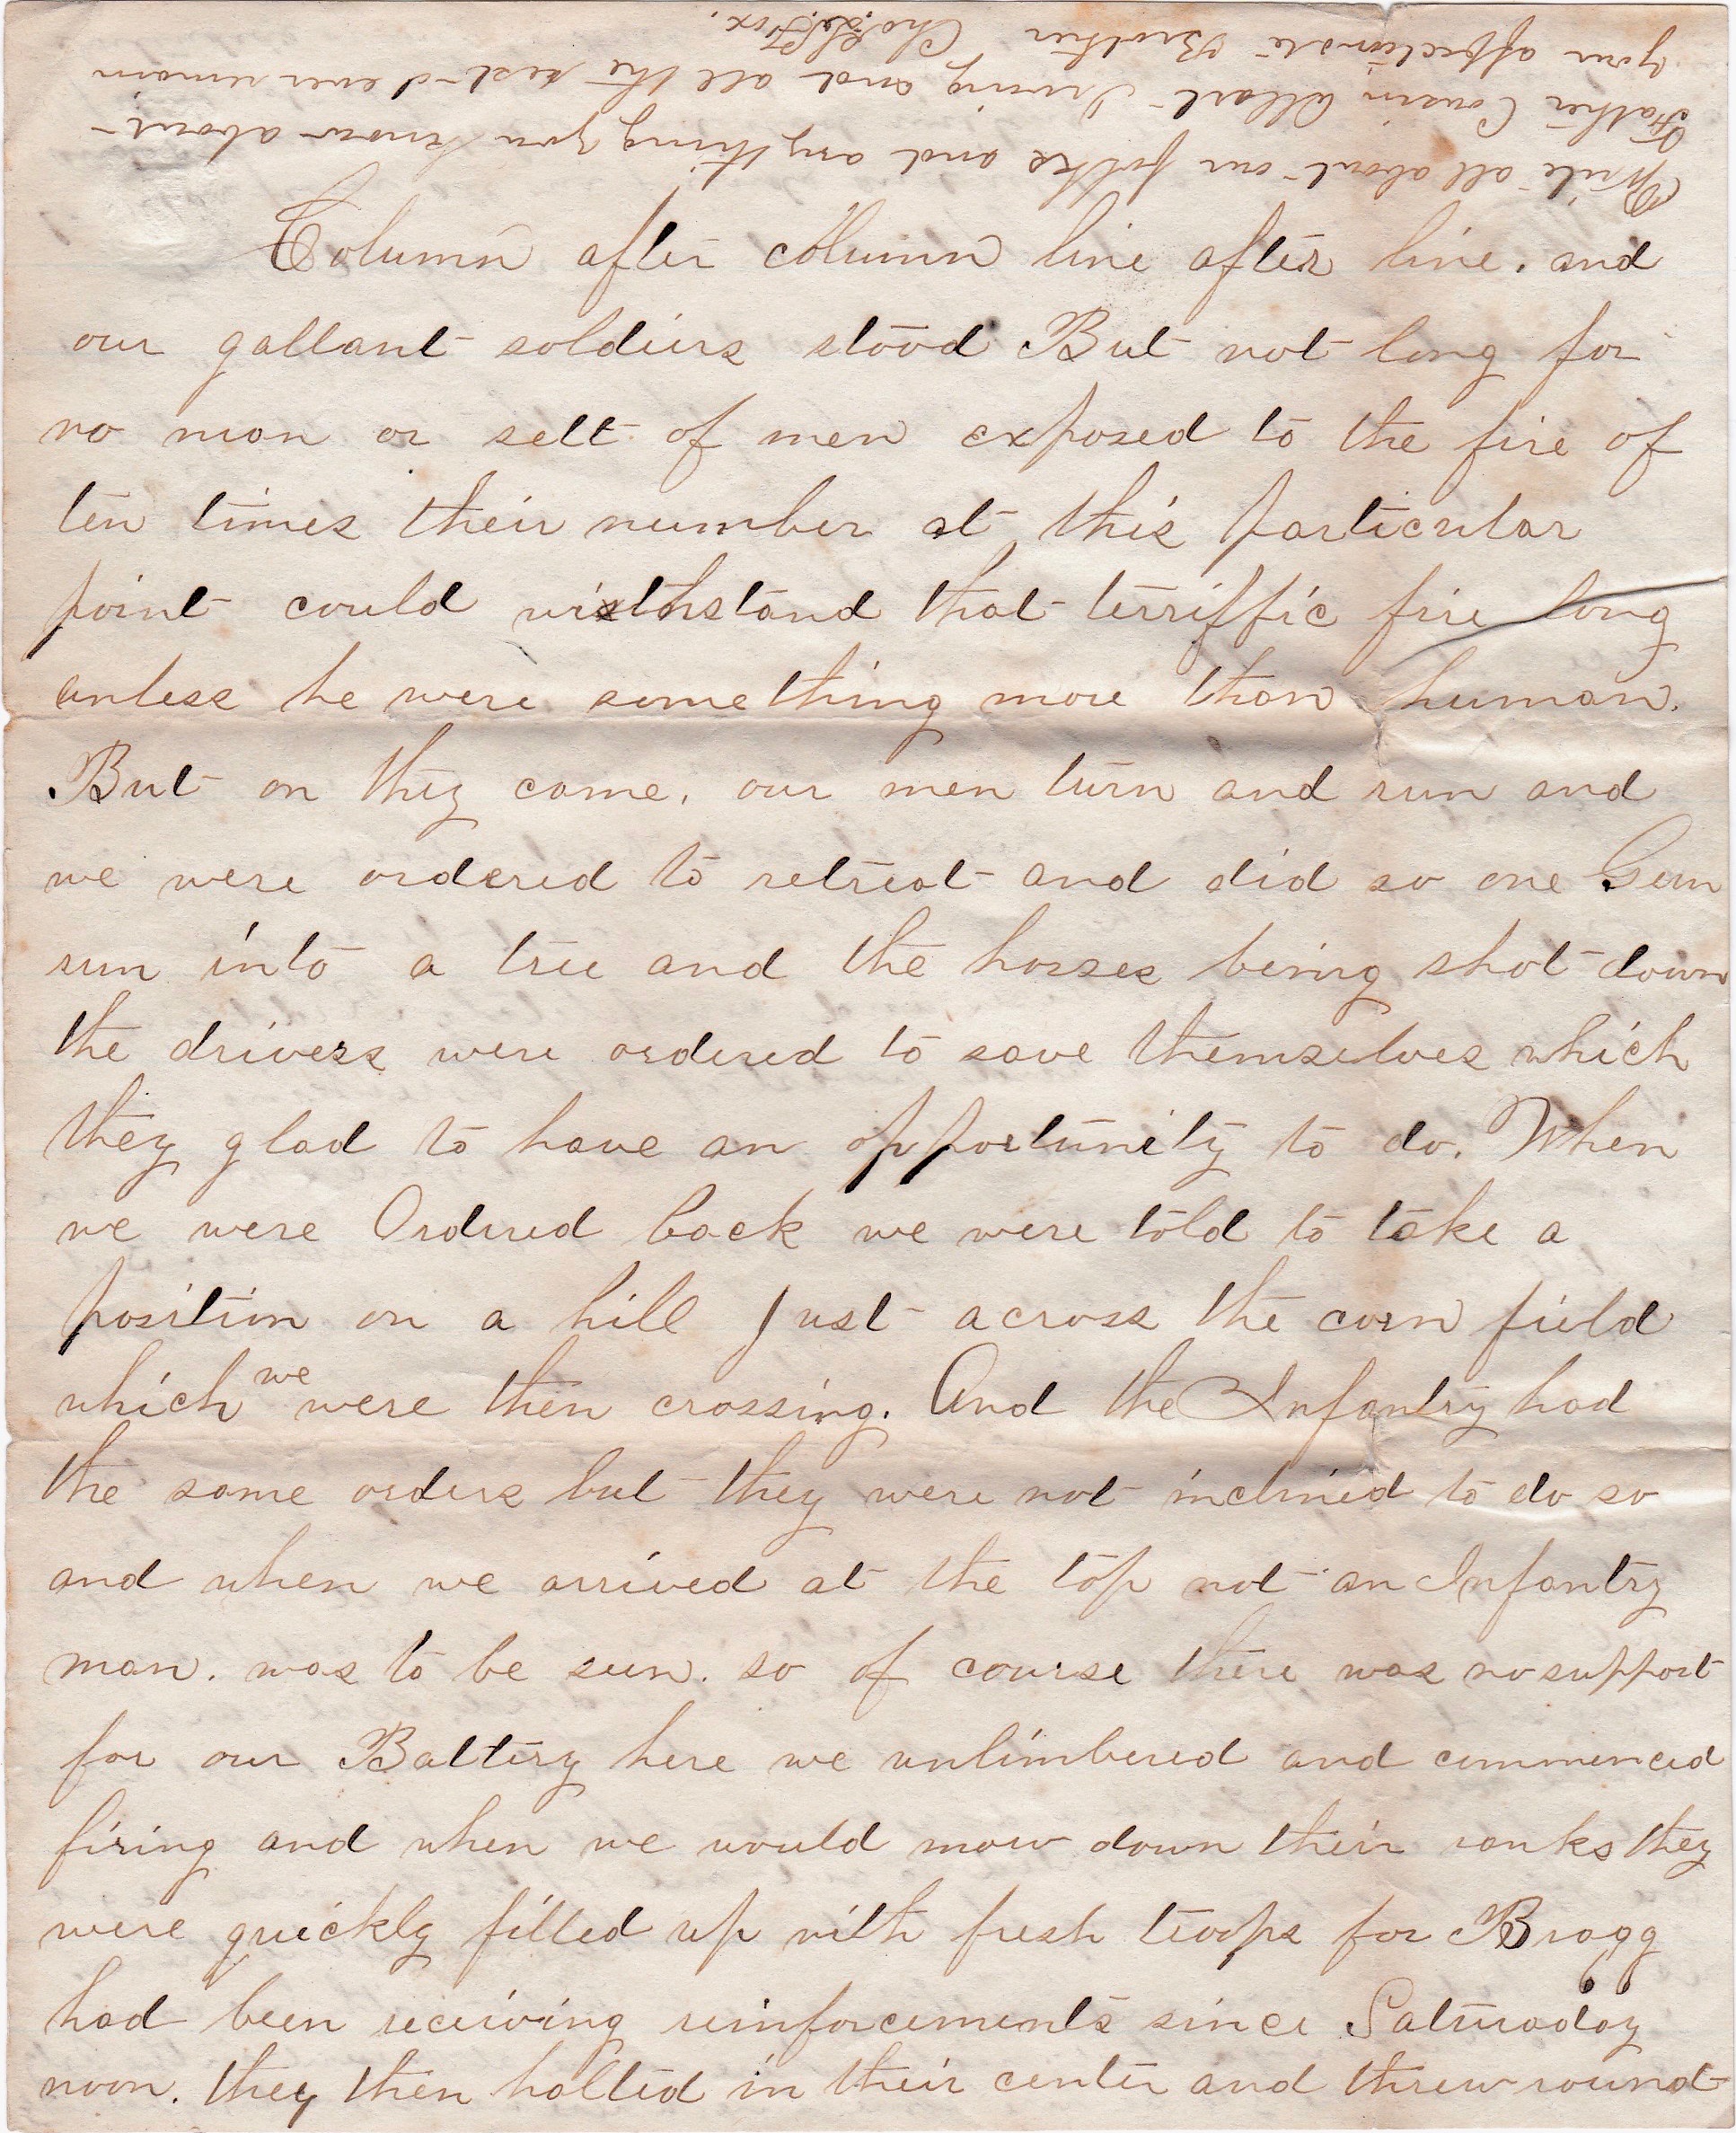 Write all about our folks and any thing you know about
Father Cousin Albert Irving and all the rest and ever remain
your affectionate Brother Chas. L. Fox.
Column after column line after line. and
our gallant soldiers stood But not long for
no man or sett of men exposed to the fire of
ten times their number at this particular
point could withstand that terriffic fire long
unless he were something more than human.
But on they come. our men turn and run and
we were ordered to retreat and did so one Gun
run into a tree and the horses being shot down
the drivers were ordered to save themselves which
they glad to have an opportunity to do. When
we were Ordered back we were told to take a
position on a hill Just across the corn field
which we were then crossing. And the Infantry had
the same orders but they were not inclined to do so
and when we arrived at the top not an Infantry
man. was to be seen. so of course there was no support
for our Battery here we unlimbered and commenced
firing and when we would mow down their ranks they
were quickly filled up with fresh troops for Bragg
had been receiving reinforcements since Saturday
noon. they then halted in their center and threw round